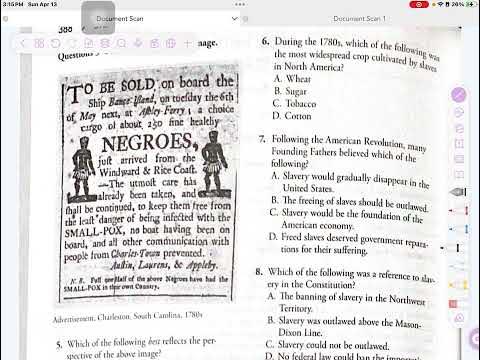 3:15 PM Sun Apr 13
26%
Document Scan
Document Scan 1
388
Questions
image.
TO BE SOLD, on board the
Ship Bance-Island, on tuesday the 6th
of May next, at Ashley-Ferry; a choice
cargo of about 250 fine healthy
NEGROES,
just arrived from the
Windward & Rice Coast.
—The utmost care has
already been taken, and
shall be continued, to keep them free from
the least danger of being infected with the
SMALL-POX, no boat having been on
board, and all other communication with
people from Charles-Town prevented.
Austin, Laurens, & Appleby.
N. B. Full one Half of the above Negroes have had the
SMALL-POX in their own Country.
Advertisement, Charleston, South Carolina, 1780s
5. Which of the following best reflects the per-
spective of the above image?
6. During the 1780s, which of the following was
the most widespread crop cultivated by slaves
in North America?
A. Wheat
B. Sugar
C. Tobacco
D. Cotton
7. Following the American Revolution, many
Founding Fathers believed which of the
following?
A. Slavery would gradually disappear in the
United States.
B. The freeing of slaves should be outlawed.
C. Slavery would be the foundation of the
American economy.
D. Freed slaves deserved government repara-
tions for their suffering.
8. Which of the following was a reference to slav-
ery in the Constitution?
A. The banning of slavery in the Northwest
Territory.
B. Slavery was outlawed above the Mason-
Dixon Line.
C. Slavery could not be outlawed.
D. No federal law could ban the